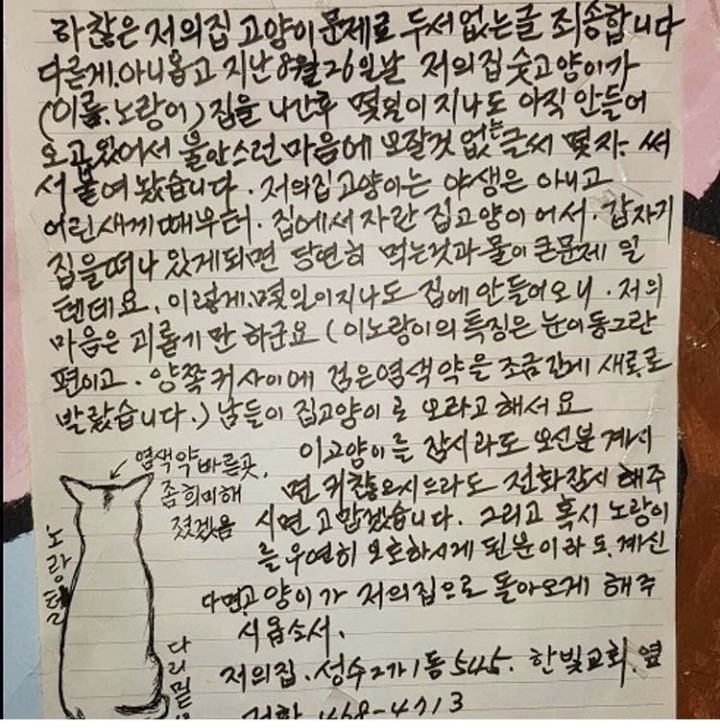 하찮은 저의집 고양이 문제로 두서 없는글 죄송합니다
다른게.아니옵고 지난 8월 26일날 저의집 숫고양이가
(이름.노랑이) 집을 나간후 몇일이 지나도 아직 안들어
오고있어서 불안스런 마음에 보잘것 없는글씨 몇자. 써
서 붙여 봤습니다. 저의집고양이는 야생은 아니고
어린새끼때부터. 집에서 자란 집고양이 어서. 갑자기
집을떠나 있게되면 당연히 먹는것과 물이 큰문제 일
텐데요. 이렇게.몇일이지나도 집에 안들어오니. 저의
마음은 괴롭기만 하군요 (이노랑이의 특징은 눈이동그란
편이고. 양쪽 귀사이에 검은염색약을 조금길게 새로로
발랐습니다.) 남들이 집고양이로 오라고 해서요
이고양이를 잠시라도 보신분 계시
면 귀찮으시드라도 전화잠시 해주
시면 고맙겠습니다. 그리고 혹시 노랑이
를 우연히 보호하시게 된분이라도. 계신
다면.고양이가 저의집으로 돌아오게 해주
시옵소서.
저의집. 성수2가1동 545. 한빛교회.옆
전화 468-4713
염색약바른곳.
좀희미해
졌겠음
노랑털
다리밑